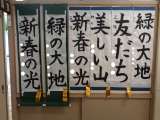 緑の大地
友だち
美しい山
新春の光
緑の大地
新春の光